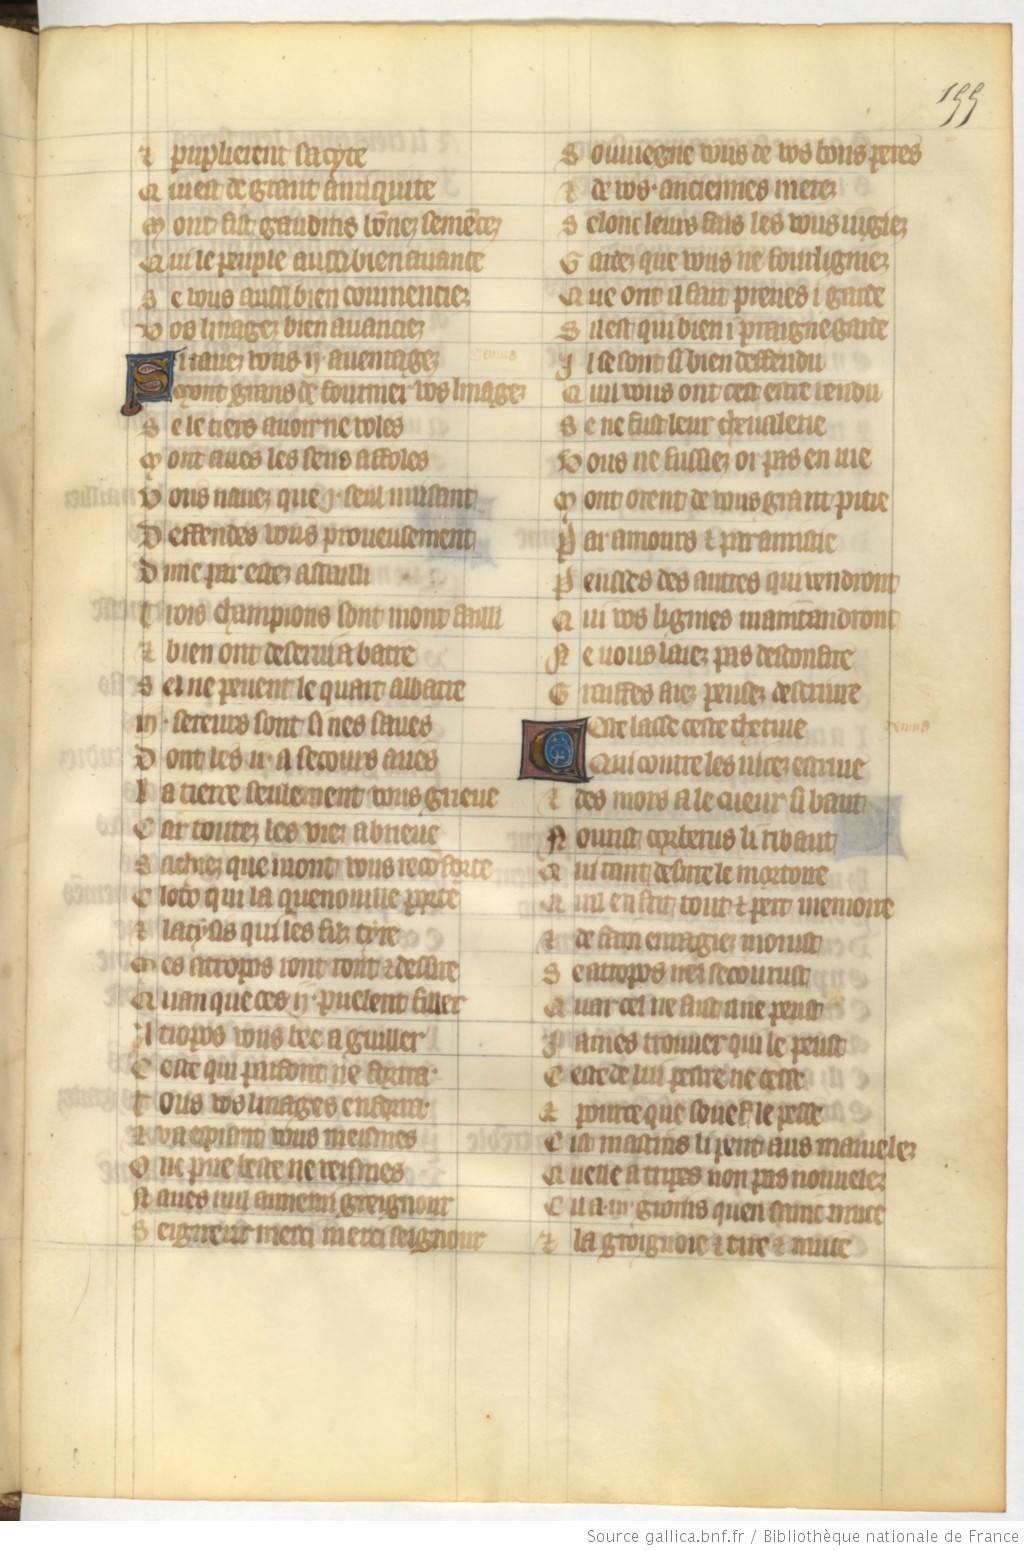 155
⁊ puplierent sa cyte
Qui est de grant antiquite
Mont fist gaudins bõnez semẽcez
Qui le peuple aussi bien auance
Se vous aussi bien commenciez
Vos linagez bien auanciez
Si nauez vous ij auentagez
Mont grans de fourmer vos linagez
Se le tiers auoir ne voles
Mont aues les sens affoles
Vous nauez que j seul nuisant
Deffendes vous proueusement
Dune part estez assailli
Trois champions sont mont failli
⁊ bien ont deserui a batre
Sel ne peuent le quart abatre
iij sereurs sont si nes saues
Dont les ij a secours aues
La tierce seulement vous grieue
Car toutez les viez abrieue
Sachiez que mont vous recõforte
Cloto qui la quenouille porte
⁊ lacysis qui les filz tyre
Mes atropos ront tout ⁊ dessire
Quan que ces ij puelent filler
Atropos vous bee a guiller
Ceste qui parfont ne
Tous vos linages enfoura
⁊ va espiant vous meismes
Onc pire beste ne veismes
Naues nul annemi greignour
Seigneur merci merci seignour
Souuiegne vous de vos bons peres
⁊ de vos anciennes meres
Selonc leurs fais les vous iugiez
Gardez que vous ne fourligniez
Que ont il fait prenes i garde
Sil est qui bien i praigne garde
Il se sont si bien deffendu
Qui vous ont cest estre rendu
Se ne fust leur cheualerie
Vous ne fussiez or pas en vie
Mont orent de vous grant pitie
Par amours ⁊ par amistie
Penssés des autres qui vendront
Qui vos lignies maintandront
Ne vous laiez pas desconfire
Graiffes aiez pensez descriure
Cete lasse ceste chetiue
Qui contre les uicez estriue
⁊ des mors a le cueur si baut
Nourist cerberus li ribaut
Qui tant desirre le mortoire
Quil en frit tout ⁊ pert memoire
⁊ de fain enragiez morust
Se atropos nel secourust
Quar cel ne fust il ne peust
James trouuer qui le peust
Ceste de lui pestre ne cesse
⁊ pource que souef le pesse
Cist mastins li pent aus mamelez
Quelle a tripes non pas nouuelez
Cil a iij groins quen saing muce
⁊ la groignoie ⁊ tire ⁊ suce